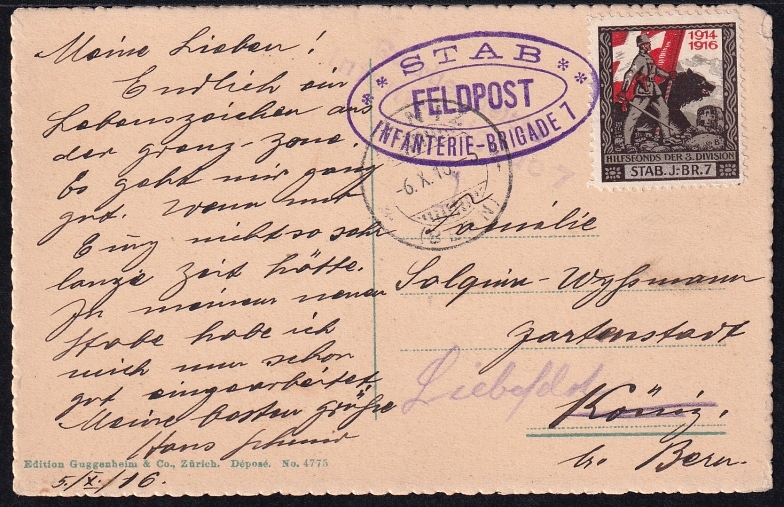 Meine Lieben!
Endlich ein
Lebenszeichen aus
der grenz-zone.
Es geht mir ganz
gut. Wenn nur
Eug nicht so sehr
lange Zeit hätte.
In meinem neuen
Stabe habe ich
mich nun schon
gut eingearbeitet
Meine besten grüsse
Hans
Edition Guggenheim & Co., Zürich. Déposé. No. 4775
5./X./16.
STAB
FELDPOST
INFANTERIE-BRIGADE 7
6.X.16
(BERN)
1914
1916
HILFSFONDS DER 3. DIVISION
STAB. J:BR.7
Familie
Wyssmann
gartenstadt
Liebefeld
Köniz,
b. Bern.